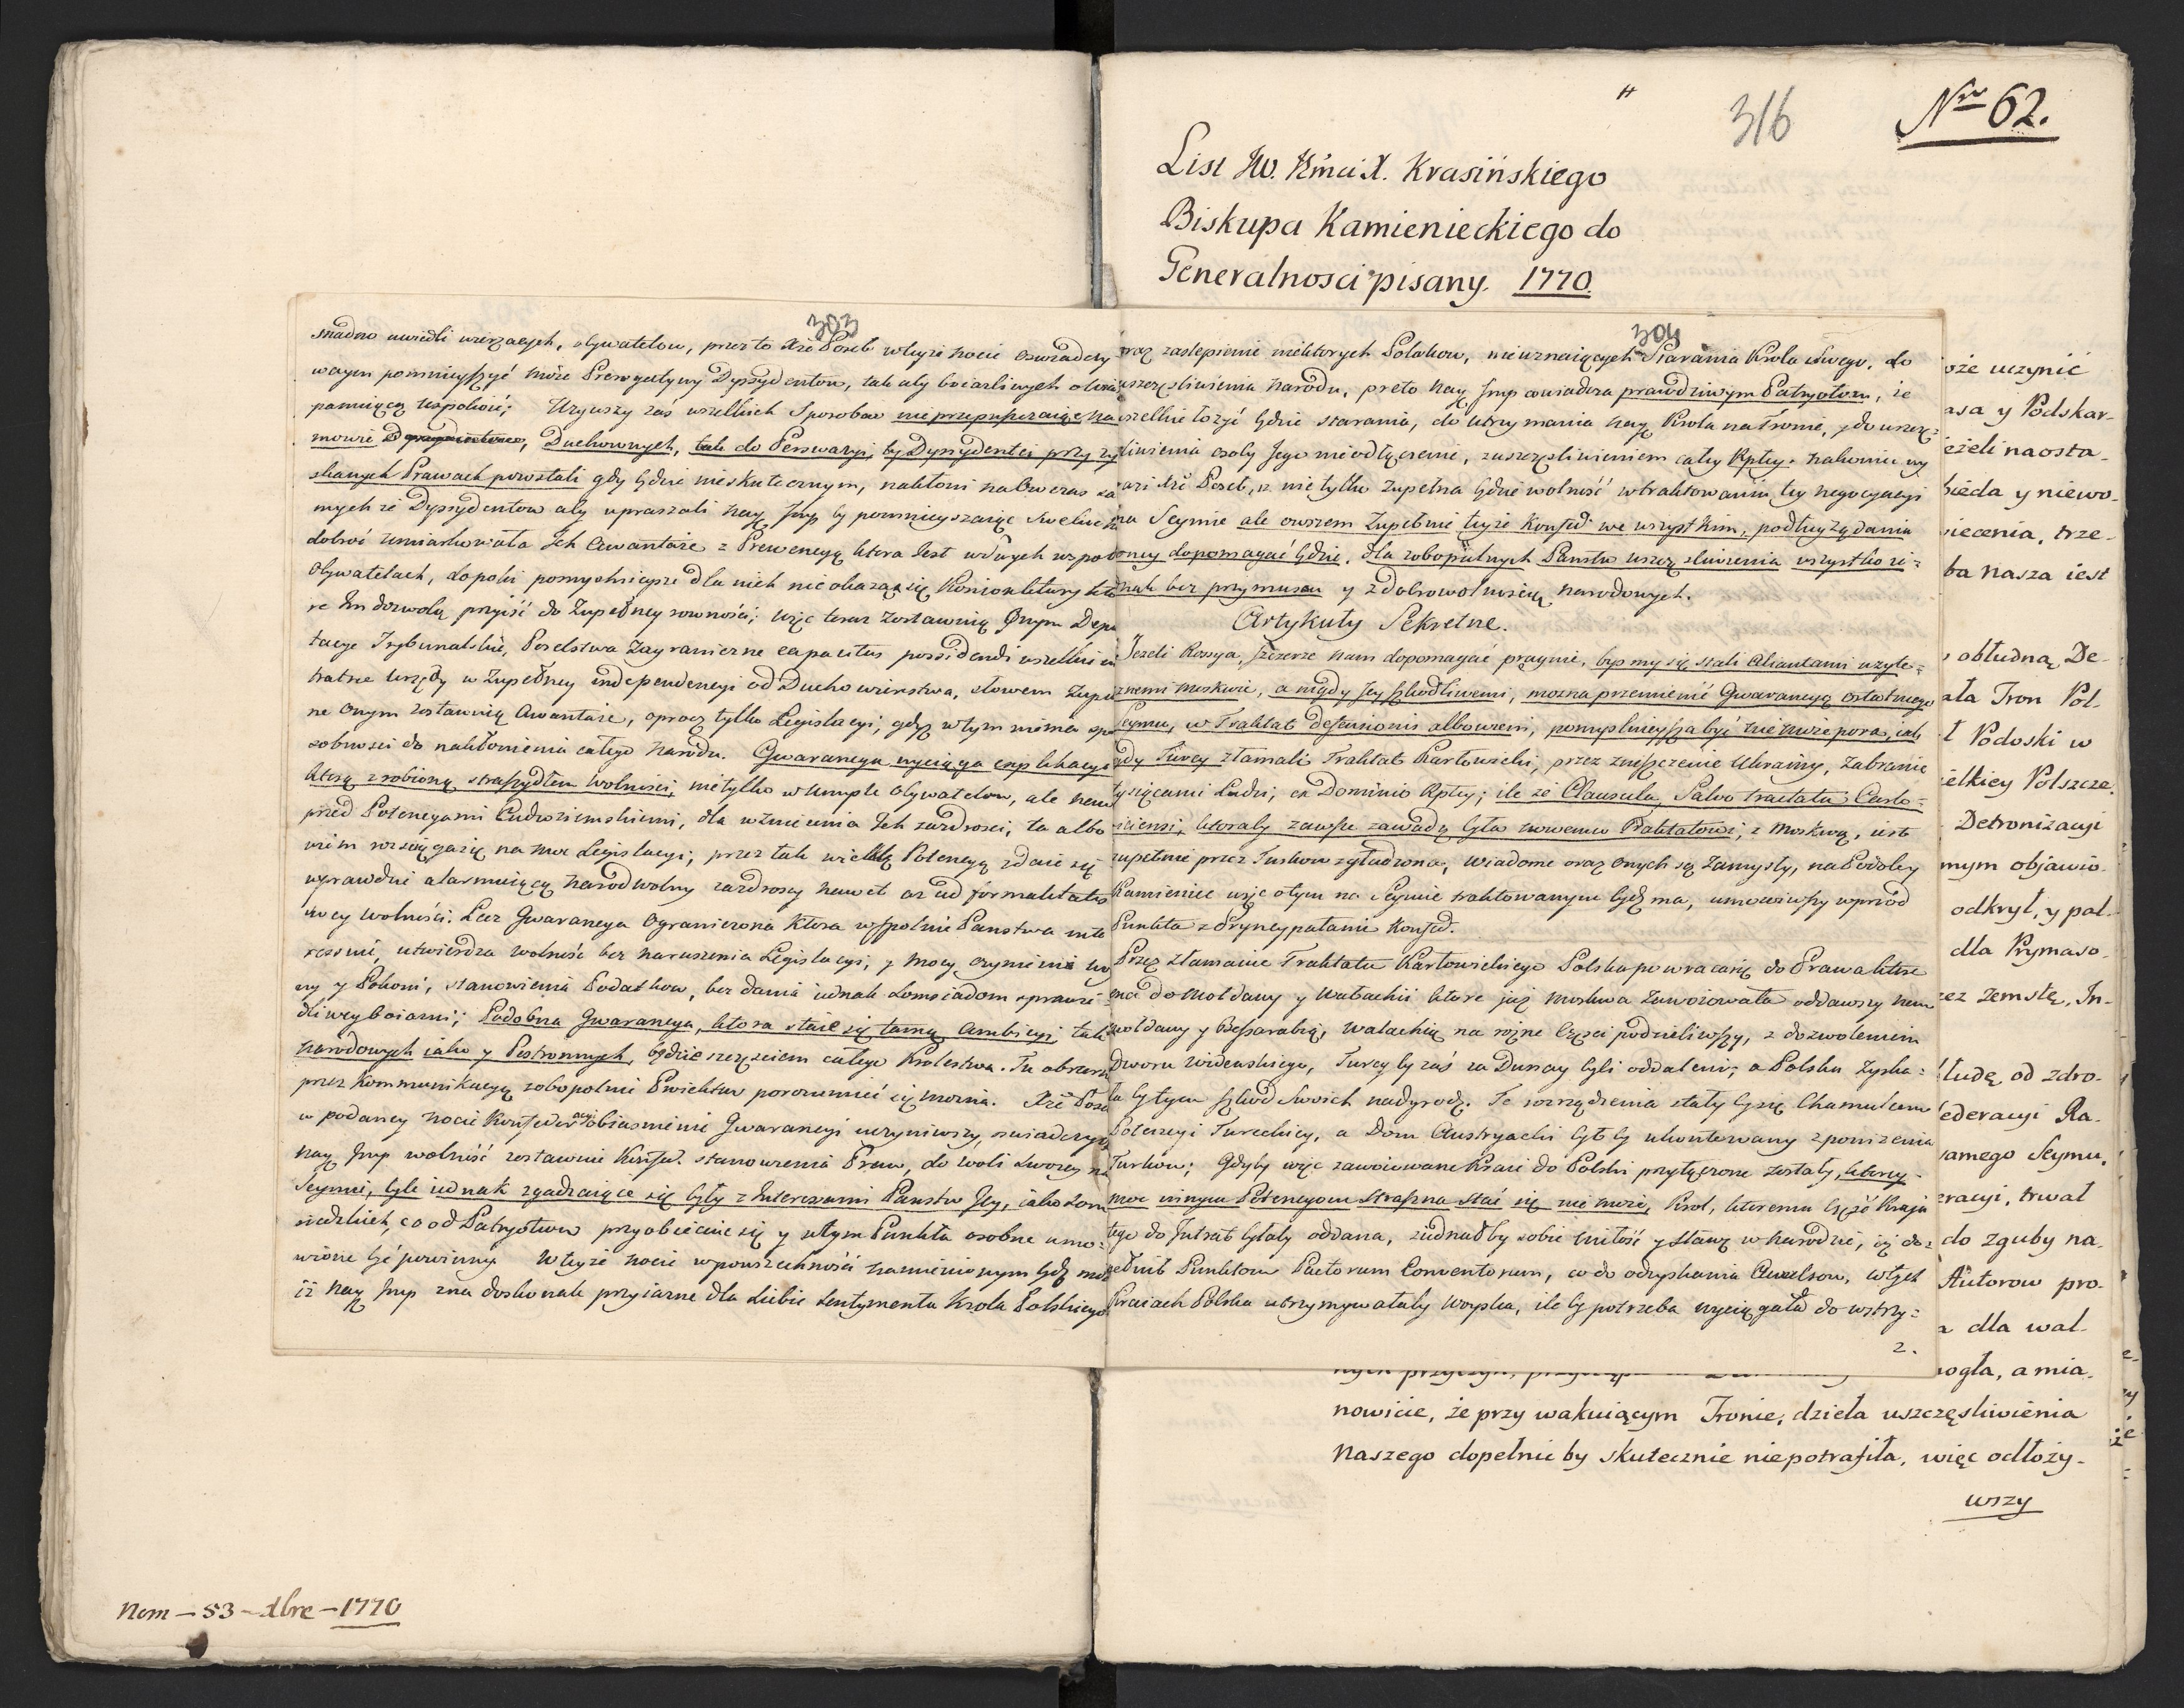 316
Nro 62.
List JW. Jmci X. Krasińskiego
Biskupa Kamienieckiego do
Generalnosci pisany. 1770.
303
snadno uwiedli wierzących, obywatelow, przez to Xże Poseł w teyże nocie oswiadczy
waym pomnieyszyć może Prerogatywy Dyssydentow, tak aby boiazliwych
pamięcią uspokoić; Uzywszy zaś wszelkich Sposobow nie przepuszczaiąc na
mowie Duchownych, tak do Perswazyi, by Dyssydentei przy
Prawach powstali gdy będzie nieskutecznym, nakłoni naowczas
mych ze Dyssydentow aby upraszali Nay Jmp by pomnieyszaiąc Swoie
dobroć umiarkowała Ich Awantaże z Prewencyą ktora Jest w
Obywatelach, dopoki pomyslnieysze dla nich nie okazaą się Koniunktury
re Im dozwolą przyiść do Zupełney rowności; więc teraz zostawuią Onym Depu
tacye Trybunalskie, Poselstwa Zagraniczne capacitas possidendi wszelkie
Urzędy w Zupełney independencyi od Duchowieństwa, słowem Zupeł
ne Onym zostawuią Awantaże, oprocz tylko Legislacyi; gdyż w tym niema spo
sobnosci do nakłonienia całego Narodu. Gwarancya wyciąga explikacyi
ktorą zrobioną straszydłem wolnosci, nietylko w umysle Obywatelow, ale
przed Potencyami Cudzoziemskiemi, dla wzniecenia Ich zazdrosci, ta albo
wiem rozciągaiąc na moc Legislacyi; przez tak wielką Potencyą zdaie się
wprawdzie alarmuiącą Narod wolny zazdrosny nawet az ad formalitates
swey wolności. Lecz Gwarancya Ograniczona Ktora wspolnie Panstwa inte
ressuie, utwierdza wolność bez naruszenia Legislacyi, y mocy czynienia
ny y Pokoiu, stanowienia Podatkow, bez dania iednak Somsiadom sprawie
dliwey boiazni; Podobna Gwarancya, ktora staie się tamą Ambicyi tak
Narodowych iako y Postronnych, będzie szczęsciem całego Krolestwa. Tu
przez Kommunikacyą zobopolnie Proiektow porozumieć się można. Xże Poseł
w podaney nocie Konfederacyi obiasnienie Gwarancyi uczyniwszy, oswiadczył
Nay Jmp wolność zostawuie Konfed. stanowienia Praw, do woli Swoiey na
Seymie, byle iednak zgadzaiące się były z Interessami Panstw Jey, iako som
siedzkich, co od Patryotow przyobiecuie się y w tym Punkta osobne umo-
wione być powinny. W teyże nocie w powszechności namienionym bydź
iż Nay Jmp zna doskonale przyiazne dla Siebie Sentymenta Krola Polskiego
304
oraz zaslepienie niektorych Polakow, nieuznaiących Starania Krola Swego, do
uszczęsliwienia Narodu, przeto Nay Jmp oswiadcza prawdziwym Patryotom, że
wszelkie łożyć będzie starania, do utrzymania Nay Krola na Tronie, y do uszczę-
sliwienia osoby Jego nieodłącznie, z uszczęsliwieniem całey Rpltey. nakoniec
Xże Poseł, iż nietylko Zupełna będzie wolność w traktowaniu tey negocyacyi
na Seymie ale owszem Zupełnie teyże Konfed we wszystkim, podług żądania
oney dopomagać będzie, dla zobopolnych Panstw uszczęsliwienia wszystko ie-
dnak bez przymusu y z dobrowolnością Narodowych.
Artykuły Sekretne.
Jeżeli Rossya, szczerze nam dopomagać pragnie, byśmy się stali Aliantami uzyte-
cznemi Moskwie, a nigdy Jey szkodliwemi, mozna przemienić Gwarancyą ostatniego
Seymu, w Traktat Defensionis albowiem, pomyslnieysza być nie może pora, iak
gdy Turcy złamali Traktat Karłowicki, przez zniszczenie Ukrainy, Zabranie
tysiącami Ludzi, ex Dominio Rpltey; ile że Clausula, Salvo tractatu Carlo-
viciensi, ktoraby zawsze zawadą była nowemu Traktatowi, z Moskwą, iest
zupełnie przez Turkow zgładzona; wiadome oraz onych są Zamysły, na Podoley
Kamieniec więc o tym na Seymie traktowanym bydź ma, umowiwszy wprzod
Punkta z Pryncypałami Konfed.
Przez złamanie Traktatu Karłowickiego Polska powracaiąc do Prawa ktore
ma do Mołdawy y Watachii ktore już Moskwa Zawoiowała oddawszy nam
Mołdawy y Bessarabią, Watachią na rożne Częsci podzieliwszy, z dozwoleniem
Dworu Widenskiego, Turcy by zaś za Dunay byli oddaleni; a Polska Zyska-
ła by tym szkod Swoich nadgrodę. Te rozrządzenia stały by się Chamulcem
Potencyi Tureckiey, a Dom Austryacki był by ukontentowany z ponizenia
Turkow; Gdyby więc zawoiowane Kraie do Polski przyłączone zostały, ktorey
moc innym Potencyom straszna stać się nie może, Krol, ktoremu część Kraju
tego do Intrat byłaby oddana, ziednałby sobie miłość y sławę w Narodzie, iż do-
pełnił Punktow Pactorum Conventorum, co do odzyskania Awulsow, w tych
Kraiach Polska utrzymywałaby Woyska, ile by potrzeba wyciągała do wstrzy-
2.
oże uczynić
asa y Podskar-
eżeli naosta-
bieda y niewo-
iecenia, trze-
ba nasza iest
obłudną De-
ała Tron Pol-
ł Podoski w
ielkiey Polszcze.
Detronizacyi
mym objawio-
odkrył, y pal-
dla Prymaso-
ez zemstę, In-
ludę, od zdro-
ederacyi Ra-
amego Seymu,
racyi, trwał
do zguby na-
Autorow pro-
a dla wal-
ogła, a mia-
nowicie, że przy wakuiącym Tronie, dzieła uszczęsliwienia
Naszego dopełnić by skutecznie niepotrafiła, więc odłoży-
wszy
Nom – 53 – xbre – 1770